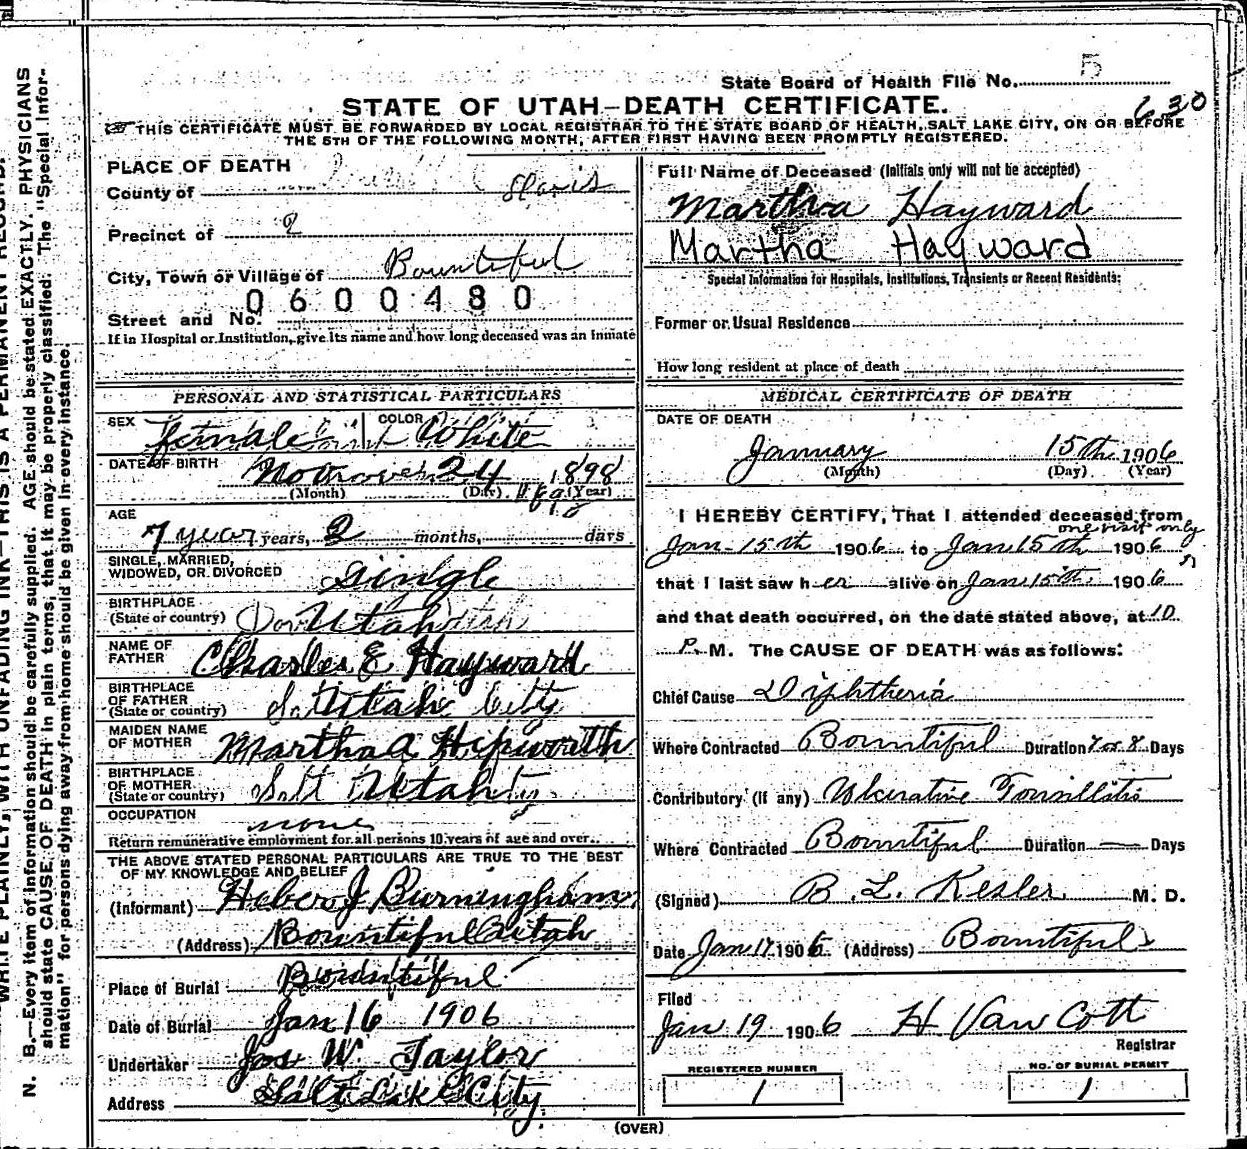 State Board of Health File No. 5
630
STATE OF UTAH—DEATH CERTIFICATE.
THIS CERTIFICATE MUST BE FORWARDED BY LOCAL REGISTRAR TO THE STATE BOARD OF HEALTH, SALT LAKE CITY, ON OR BEFORE
THE 5TH OF THE FOLLOWING MONTH, AFTER FIRST HAVING BEEN PROMPTLY REGISTERED.
PLACE OF DEATH
County of Davis
Precinct of 2
City, Town or Village of Bountiful
0600480
Street and No.
If in Hospital or Institution, give its name and how long deceased was an inmate
PERSONAL AND STATISTICAL PARTICULARS
SEX female COLOR White
DATE OF BIRTH 24 1898
(Month) (Day) (Year)
AGE
7 year years, 2 months, days
SINGLE, MARRIED,
WIDOWED, OR DIVORCED single
BIRTHPLACE
(State or country) Utah
NAME OF
FATHER Charles E Hayward
BIRTHPLACE
OF FATHER
(State or country) Utah City
MAIDEN NAME
OF MOTHER Martha A Hepworth
BIRTHPLACE
OF MOTHER
(State or country) Salt Utah
OCCUPATION none
Return remunerative employment for all persons 10 years of age and over.
THE ABOVE STATED PERSONAL PARTICULARS ARE TRUE TO THE BEST
OF MY KNOWLEDGE AND BELIEF
(Informant) Heber J Burningham
(Address) Bountiful Utah
Place of Burial Bountiful
Date of Burial Jan 16 1906
Undertaker Jos W. Taylor
Address Salt Lake City.
Full Name of Deceased (Initials only will not be accepted)
Martha Hayward
Martha Hayward
Special Information for Hospitals, Institutions, Transients or Recent Residents:
Former or Usual Residence
How long resident at place of death
MEDICAL CERTIFICATE OF DEATH
DATE OF DEATH
January 15th 1906
(Month) (Day) (Year)
I HEREBY CERTIFY, That I attended deceased from
one visit only
Jan-15th 1906 to Jan 15th 1906
that I last saw her alive on Jan 15th 1906
and that death occurred, on the date stated above, at 10
P. M. The CAUSE OF DEATH was as follows:
Chief Cause Diphtheria
Where Contracted Bountiful Duration 7 or 8 Days
Contributory (if any) Ulcerative Tonsillitis
Where Contracted Bountiful Duration — Days
(Signed) B. L. Kesler M. D.
Date Jan 17 1906 (Address) Bountiful
Filed
Jan 19 1906 H Van Cott
Registrar
REGISTERED NUMBER
1
NO. OF BURIAL PERMIT
1
(OVER)
WRITE PLAINLY, WITH UNFADING INK—THIS IS A PERMANENT RECORD.
N. B.—Every item of information should be carefully supplied. AGE should be stated EXACTLY. PHYSICIANS
should state CAUSE OF DEATH in plain terms, that it may be properly classified. The "Special Infor-
mation" for persons dying away from home should be given in every instance.